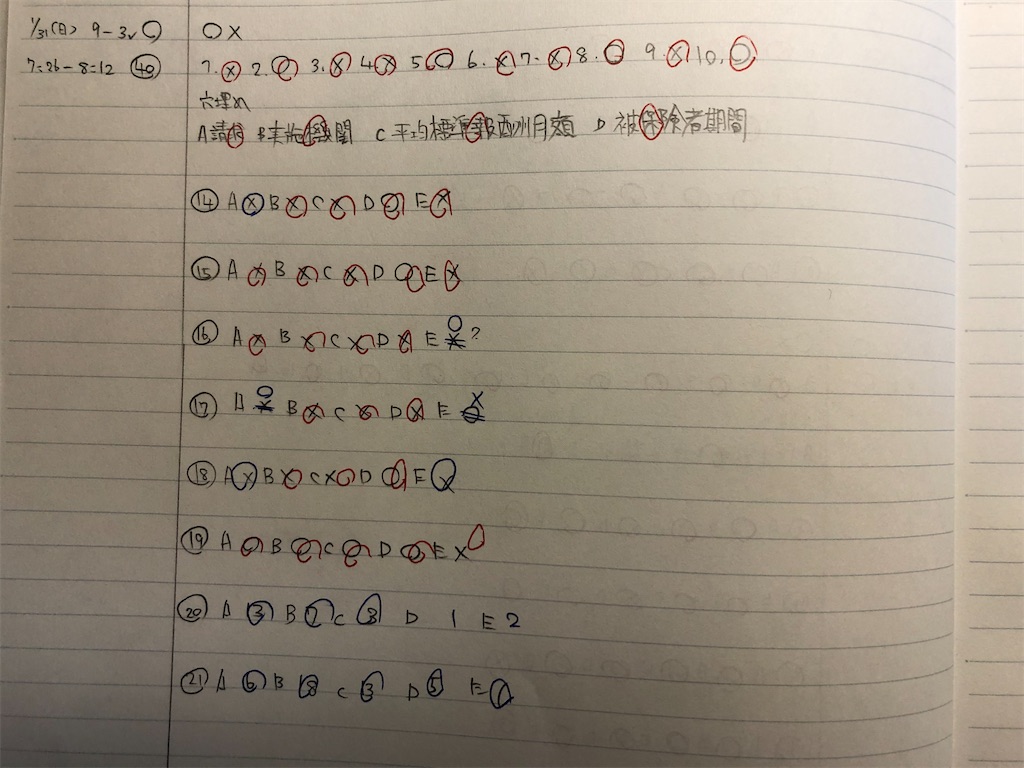 1/31(日) 9-3 ○×
7:26-8:12 40 1.× 2.○ 3.× 4.× 5.○ 6.× 7.× 8.○ 9.× 10.○
穴埋め
A請 B実施機関 C平均標準報酬月額 D被保険者期間
⑭ A× B× C× D○ E×
⑮ A× B× C× D○ E×
⑯ A× B× C× D× E○?
⑰ A○ B× C× D× E×
⑱ A× B× C× D○ E
⑲ A○ B○ C○ D○ E×
⑳ A3 B7 C8 D1 E2
㉑ A6 B8 C3 D5 E1